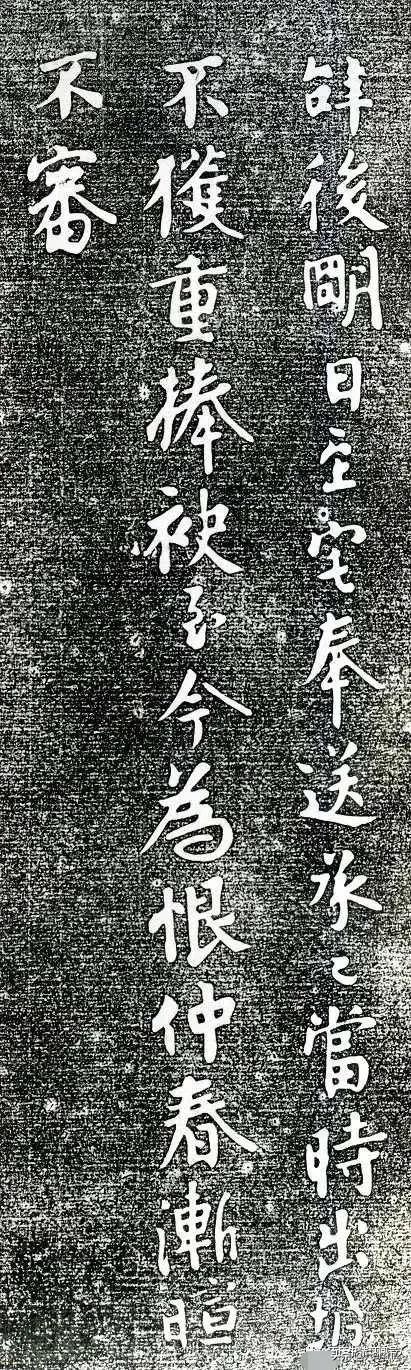 辞後明日至宅奉送承已當時出城
不獲重捧袂至今為恨仲春漸暄
不審